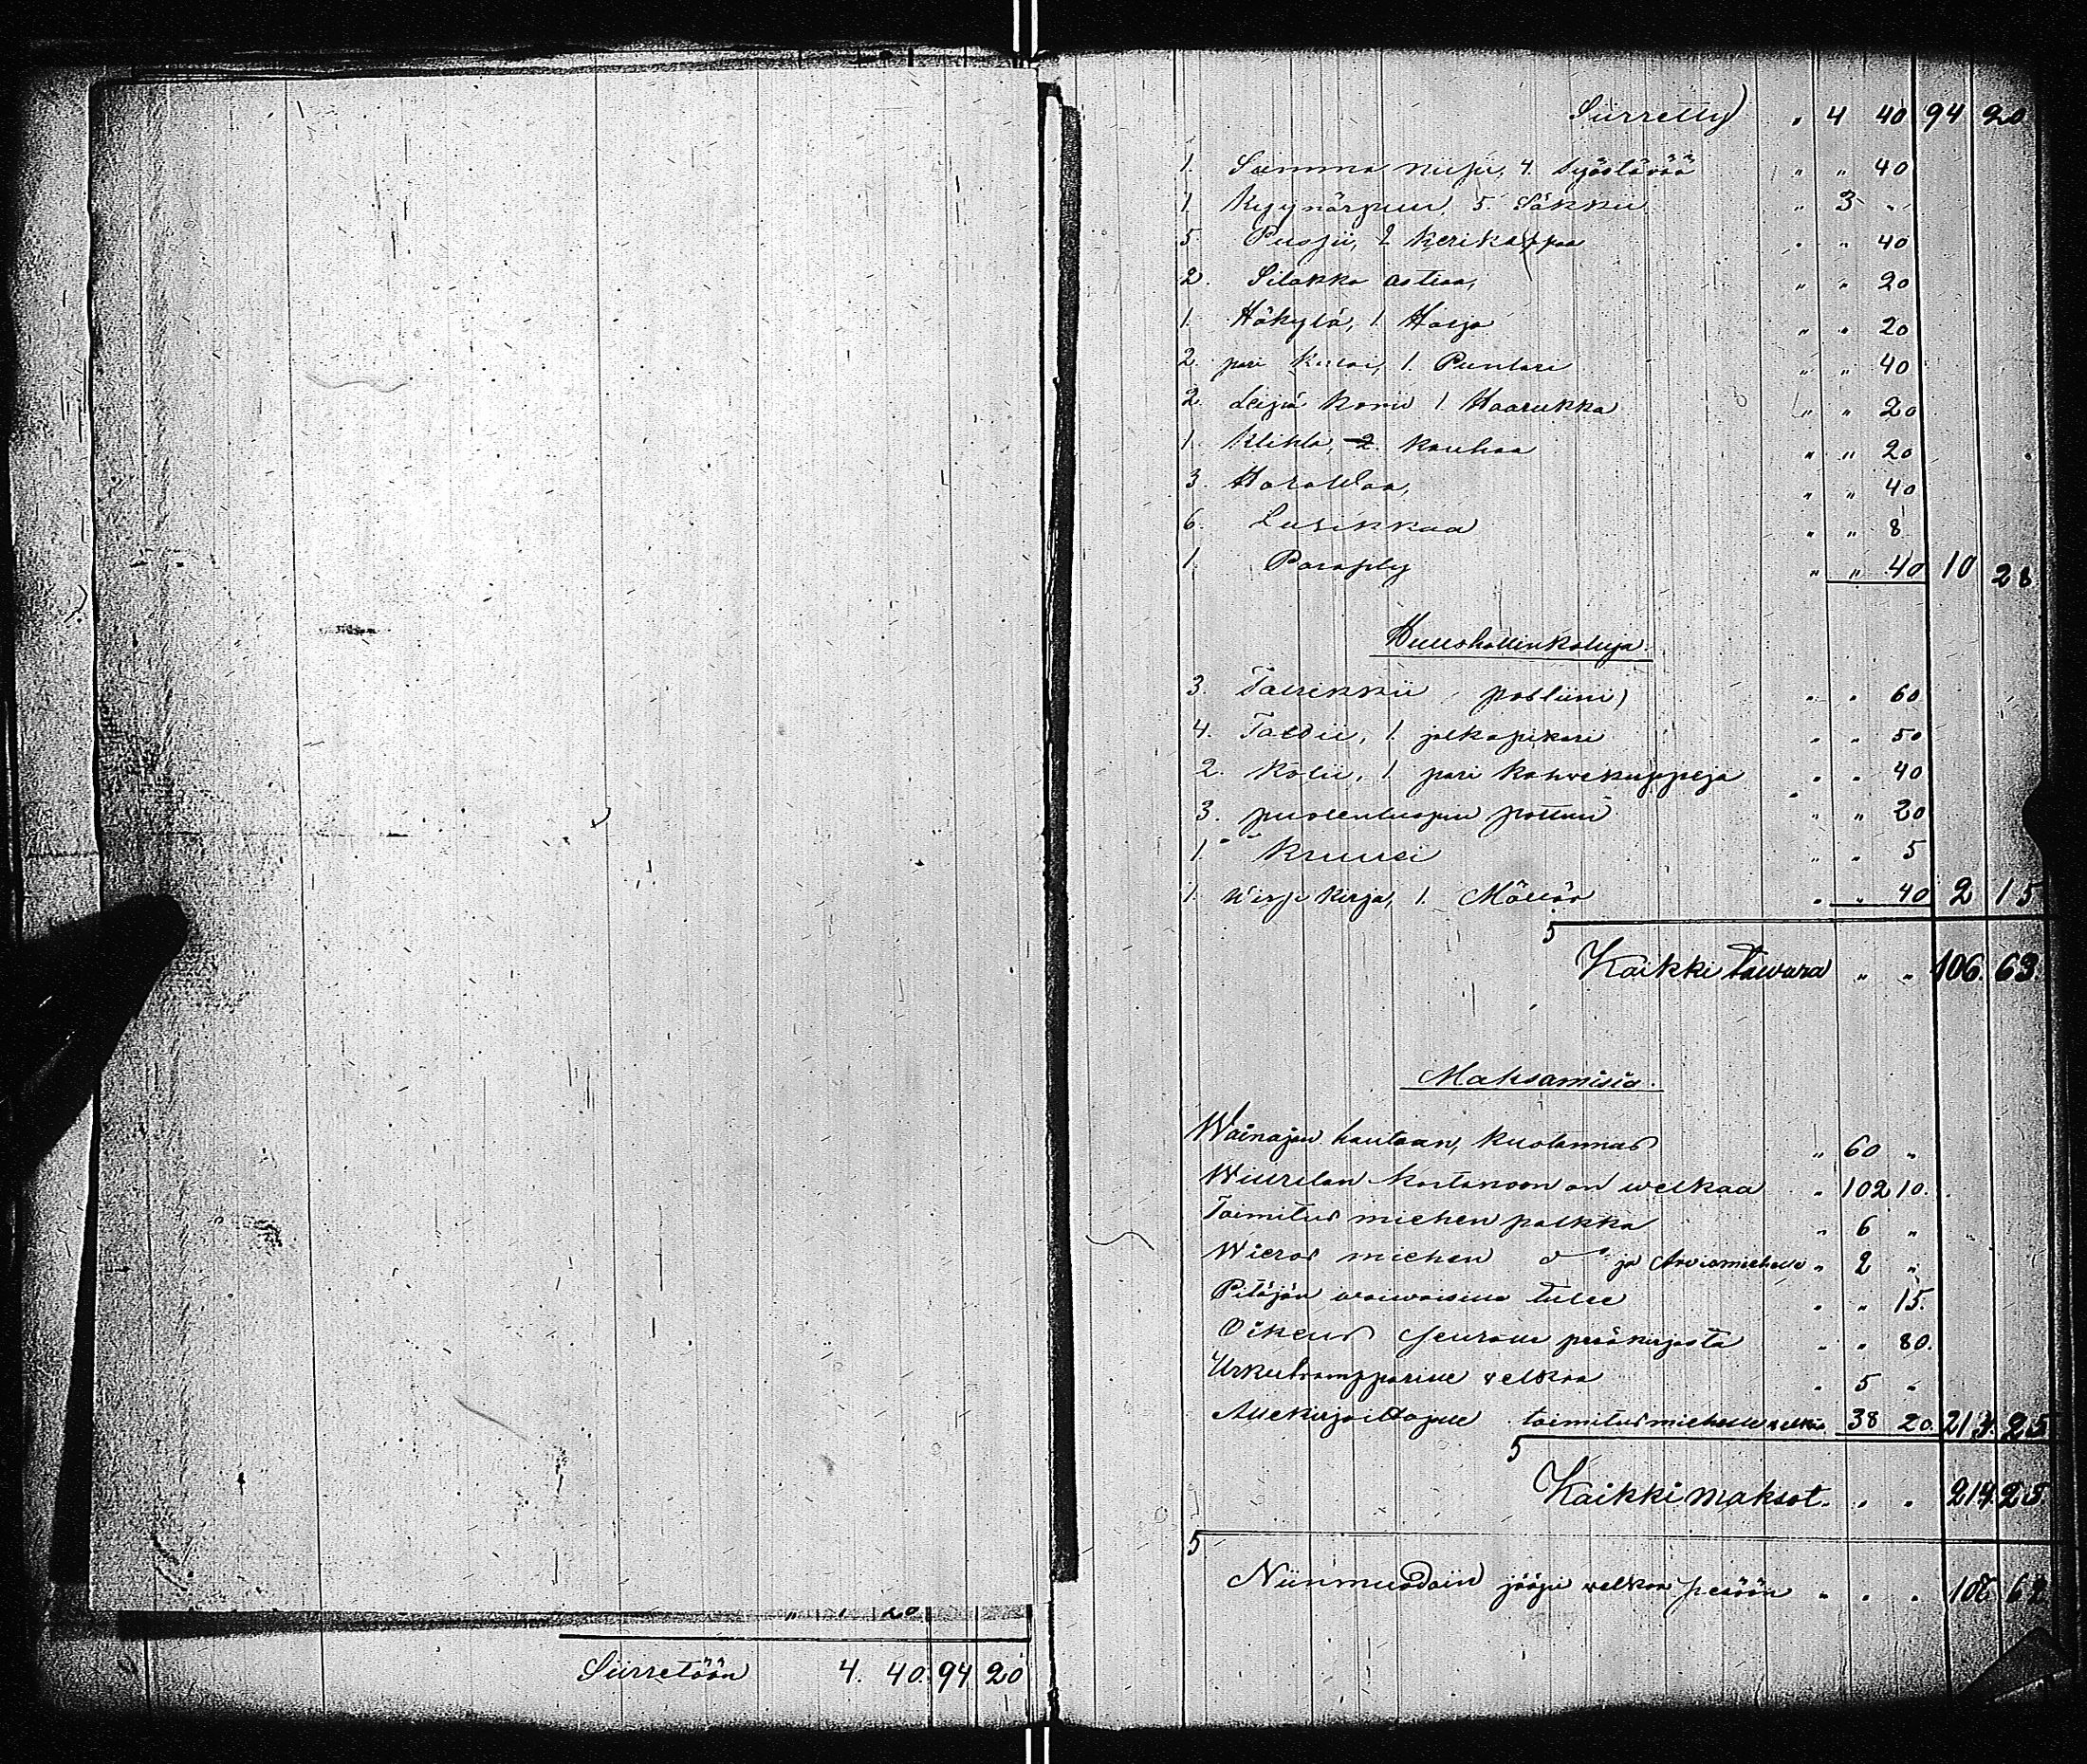 " 1 20
Siirretään 4. 40. 94 20
Siirretty " 4 40 94 20
1. 4. Syöstävää " " 40
1. Kyynärpuu, 5. Säkkiä " 3 "
5 Pussii, 2 Kerikappaa " " 40
2. Silakka astiaa, " " 20
1. Häkylä, 1 Harja " " 20
2. pari 1. Puntari " " 40
2. Leipä koria 1 Haarukka " " 20
1. Klihta, 2. Kauhaa " " 20
3. " " 40
6. Lusikkaa " " 8
1. Paraply " " 40 10 28
Huushollinkaluja.
3. Taurikkii posliini) " " 60
4. Fatiii, 1. jalkapikari " " 50
2. Kolii, 1. pari kahvekuppeja " " 40
3. puolentuopin pottua " " 20
1. " Kruusi " " 5
1. Wirsi Kirja, 1. " " 40 2 15
Kaikki tawara " " 106. 63
Maksamisia.
Wainajan hautaan, kustannus " 60 "
Wiurilan kartanoon on welkaa " 102 10.
Toimitus miehen palkka " 6 "
Wieras miehen d:o ja Arviomiehelle " 2 "
Pitäjän waiwaisille tulee " " 15.
Oikeus seuralle peräkirjasta " " 80.
Urkutramppariue velkaa " 5 "
Allekirjoittajalle toimitusmiehelle velkaa 38 20. 214. 25
Kaikki maksot. " " 214. 25
Niinmuodoin jääpi welkaa pesään " " " 108 62